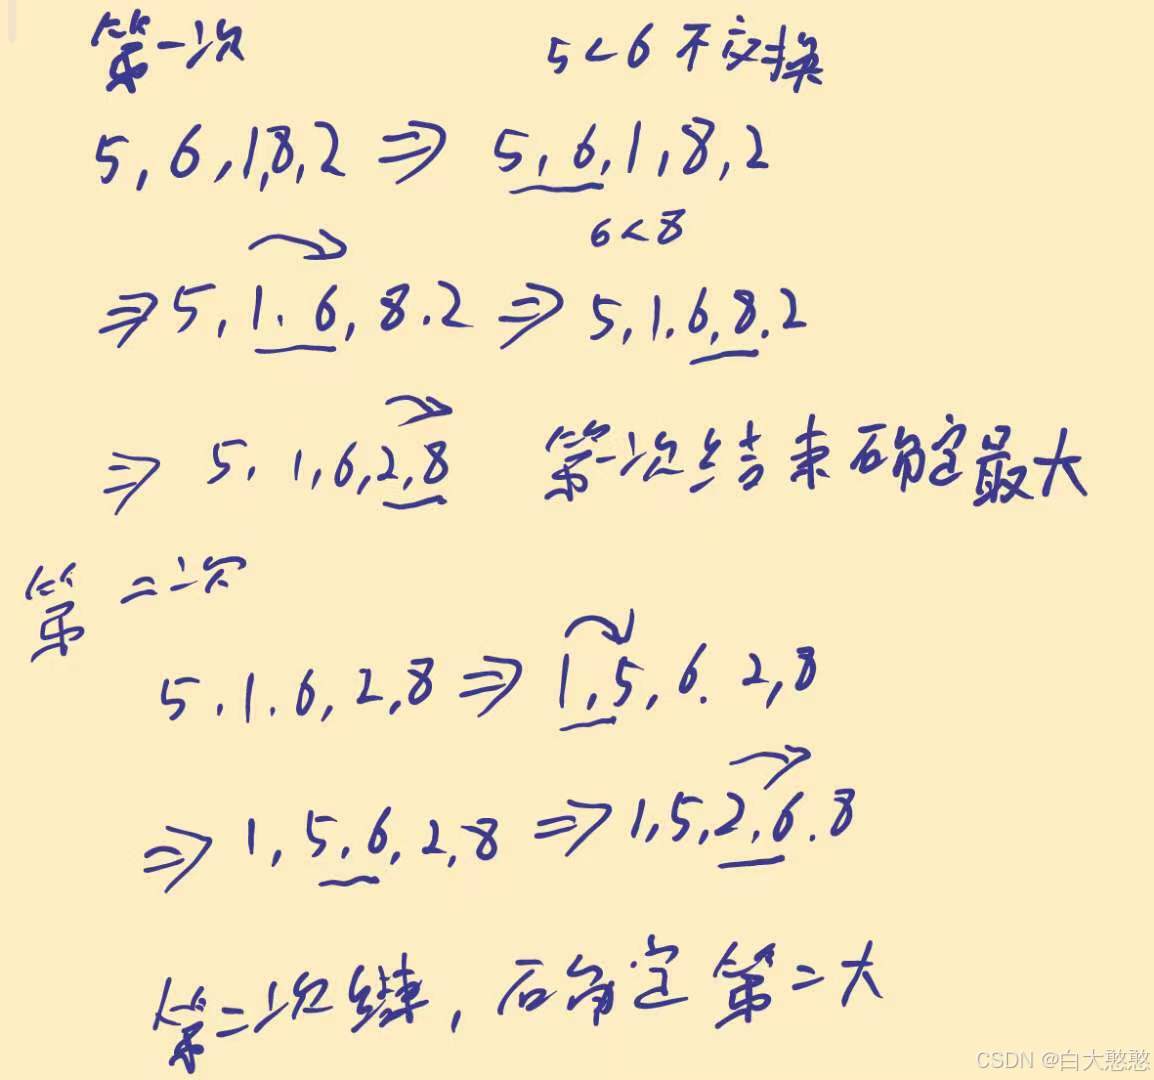 第一次 5<6 不交换
5,6,1,8,2 ⇒ 5,6,1,8,2
6<8
⇒ 5,1.6,8.2 ⇒ 5,1.6,8.2
⇒ 5,1,6,2,8 第一次结束确定最大
第二次
5.1.6,2,8 ⇒ 1,5,6.2,8
⇒ 1,5,6,2,8 ⇒ 1,5,2,6.8
第二次结束,确定第二大
CSDN @白大憨憨